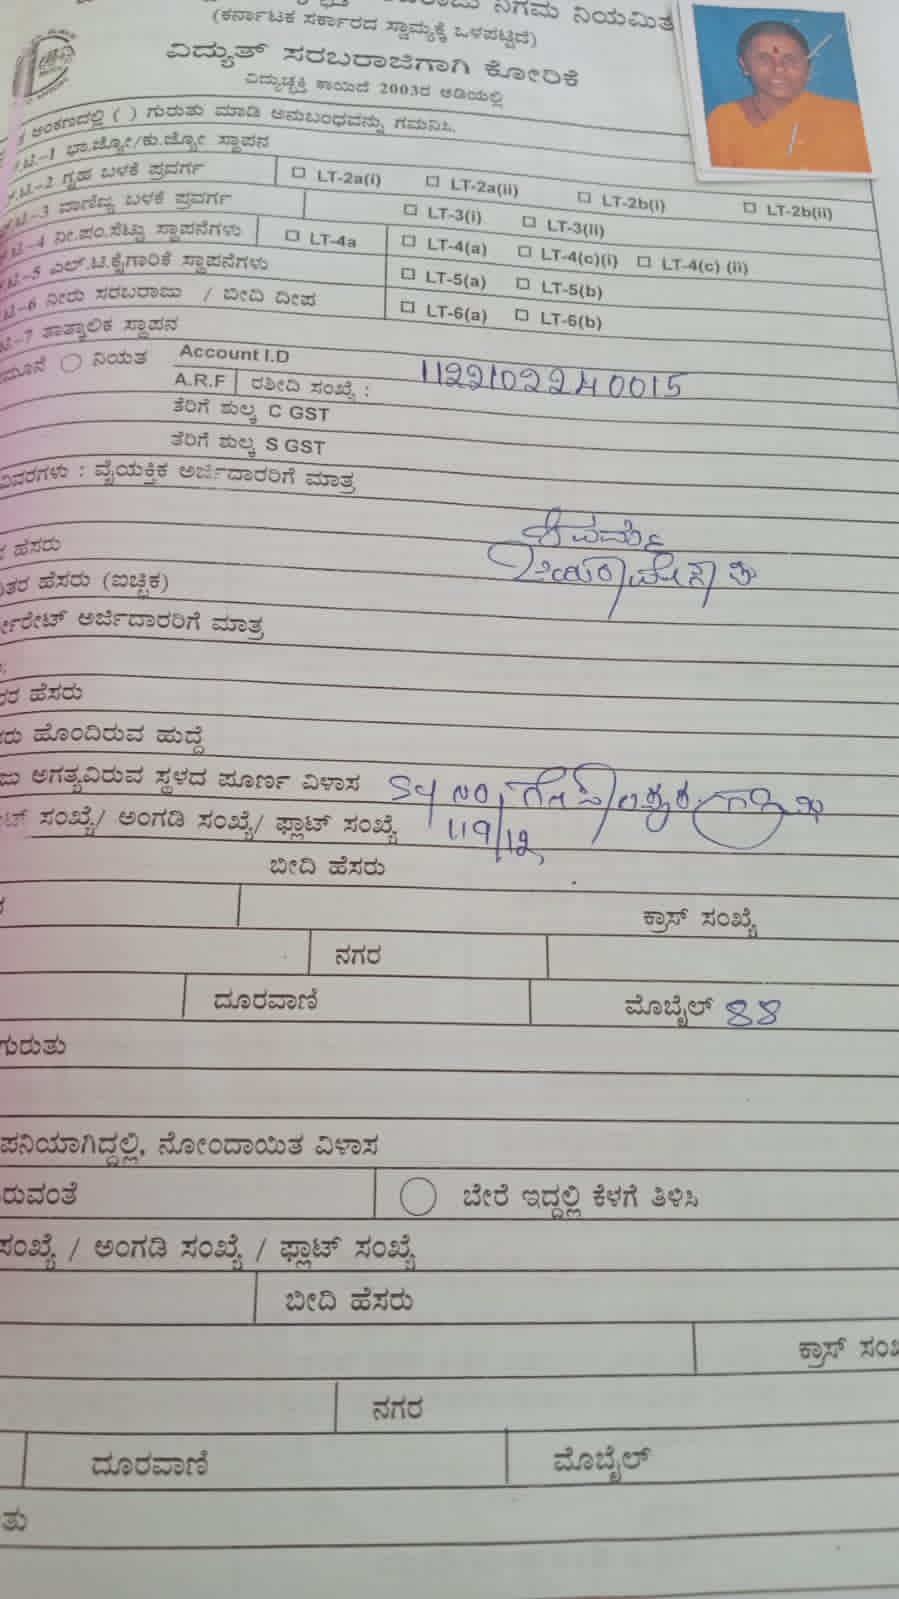 ನಿಗಮ ನಿಯಮಿತ
(ಕರ್ನಾಟಕ ಸರ್ಕಾರದ ಸ್ವಾಮ್ಯಕ್ಕೆ ಒಳಪಟ್ಟಿದೆ)
ವಿದ್ಯುತ್ ಸರಬರಾಜಿಗಾಗಿ ಕೋರಿಕೆ
ವಿದ್ಯುಚ್ಛಕ್ತಿ ಕಾಯಿದೆ 2003ರ ಅಡಿಯಲ್ಲಿ
ಅಂಕಣದಲ್ಲಿ ( ) ಗುರುತು ಮಾಡಿ ಅನುಬಂಧವನ್ನು ಗಮನಿಸಿ.
.ಟಿ.-1 ಭಾ.ಜ್ಯೋ/ಕು.ಜ್ಯೋ ಸ್ಥಾಪನ
.ಟಿ.-2 ಗೃಹ ಬಳಕೆ ಪ್ರವರ್ಗ □ LT-2a(i) □ LT-2a(ii) □ LT-2b(i) □ LT-2b(ii)
.ಟಿ.-3 ವಾಣಿಜ್ಯ ಬಳಕೆ ಪ್ರವರ್ಗ □ LT-3(i) □ LT-3(ii)
.ಟಿ.-4 ನೀ.ಪಂ.ಸೆಟ್ಟು ಸ್ಥಾಪನೆಗಳು □ LT-4a □ LT-4(a) □ LT-4(c)(i) □ LT-4(c) (ii)
.ಟಿ.-5 ಎಲ್.ಟಿ.ಕೈಗಾರಿಕೆ ಸ್ಥಾಪನೆಗಳು □ LT-5(a) □ LT-5(b)
.ಟಿ.-6 ನೀರು ಸರಬರಾಜು / ಬೀದಿ ದೀಪ □ LT-6(a) □ LT-6(b)
ಟಿ.-7 ತಾತ್ಕಾಲಿಕ ಸ್ಥಾಪನ
ನಿಯತ Account I.D
A.R.F ರಶೀದಿ ಸಂಖ್ಯೆ : 11221022240015
ತೆರಿಗೆ ಶುಲ್ಕ C GST
ತೆರಿಗೆ ಶುಲ್ಕ S GST
ವಿವರಗಳು : ವೈಯಕ್ತಿಕ ಅರ್ಜಿದಾರರಿಗೆ ಮಾತ್ರ
ಹೆಸರು
ಹೆಸರು (ಐಚ್ಛಿಕ)
ರ್ಪೊರೇಟ್ ಅರ್ಜಿದಾರರಿಗೆ ಮಾತ್ರ
ರರ ಹೆಸರು
ರು ಹೊಂದಿರುವ ಹುದ್ದೆ
ಜು ಅಗತ್ಯವಿರುವ ಸ್ಥಳದ ಪೂರ್ಣ ವಿಳಾಸ Sy NO,
ಟ್ ಸಂಖ್ಯೆ/ ಅಂಗಡಿ ಸಂಖ್ಯೆ/ ಫ್ಲಾಟ್ ಸಂಖ್ಯೆ 119/12
ಬೀದಿ ಹೆಸರು
ಕ್ರಾಸ್ ಸಂಖ್ಯೆ
ನಗರ
ದೂರವಾಣಿ ಮೊಬೈಲ್ 88
ಗುರುತು
ಪನಿಯಾಗಿದ್ದಲ್ಲಿ, ನೋಂದಾಯಿತ ವಿಳಾಸ
ರುವಂತೆ ಬೇರೆ ಇದ್ದಲ್ಲಿ ಕೆಳಗೆ ತಿಳಿಸಿ
ಸಂಖ್ಯೆ / ಅಂಗಡಿ ಸಂಖ್ಯೆ / ಫ್ಲಾಟ್ ಸಂಖ್ಯೆ
ಬೀದಿ ಹೆಸರು
ಕ್ರಾಸ್ ಸಂಖ
ನಗರ
ದೂರವಾಣಿ ಮೊಬೈಲ್
ತು